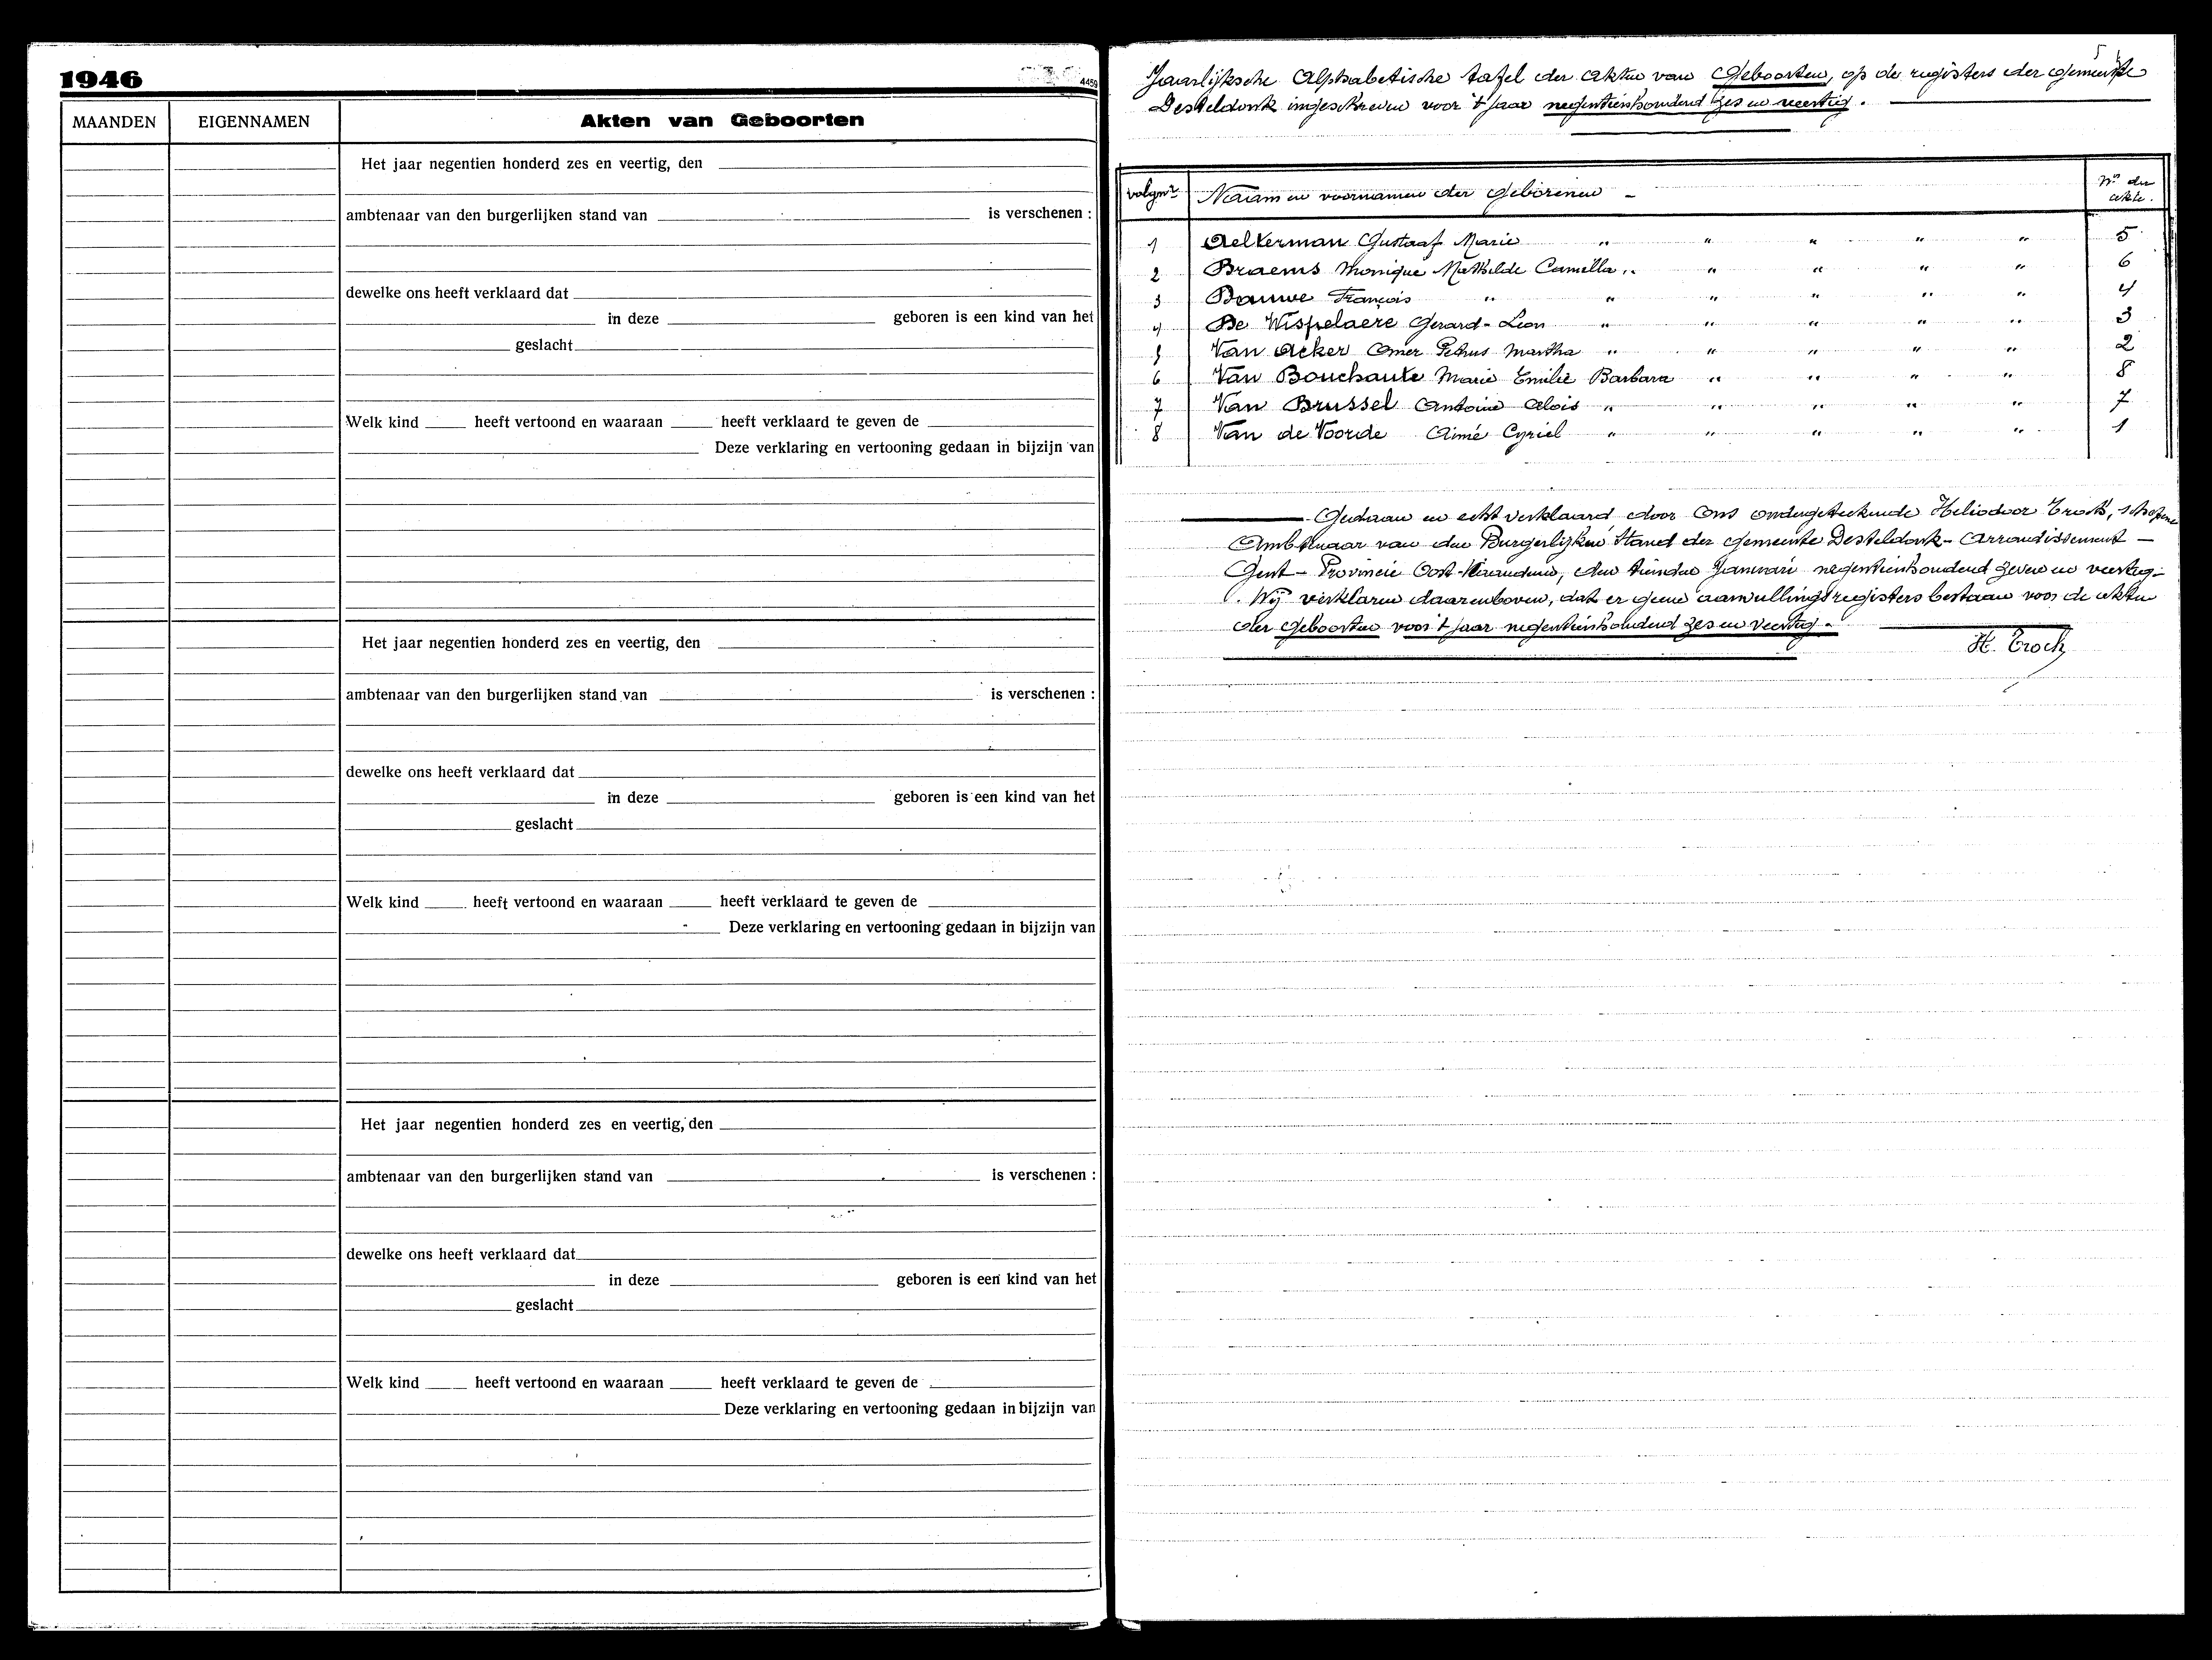 1946
4459
MAANDEN EIGENNAMEN Akten van Geboorten
Het jaar negentien honderd zes en veertig, den
ambtenaar van den burgerlijken stand van is verschenen :
dewelke ons heeft verklaard dat
in deze geboren is een kind van het
geslacht
Welk kind heeft vertoond en waaraan heeft verklaard te geven de
Deze verklaring en vertooning gedaan in bijzijn van
Het jaar negentien honderd zes en veertig, den
ambtenaar van den burgerlijken stand van is verschenen :
dewelke ons heeft verklaard dat
in deze geboren is een kind van het
geslacht
Welk kind heeft vertoond en waaraan heeft verklaard te geven de
Deze verklaring en vertooning gedaan in bijzijn van
Het jaar negentien honderd zes en veertig, den
ambtenaar van den burgerlijken stand van is verschenen :
dewelke ons heeft verklaard dat
in deze geboren is een kind van het
geslacht
Welk kind heeft vertoond en waaraan heeft verklaard te geven de
Deze verklaring en vertooning gedaan in bijzijn van
5
Jaarlijksche Alphabetische tafel der akten van Geboorten, op de registers der gemeente
Desteldonk ingeschreven voor 't jaar negentienhonderd zes en veertig.
volgnr Naam en voornamen der geborenen - No der akte.
1 Aelterman Gustaaf Marie " " " " " 5
2 Braems Monique Mathilde Camilla " " " " " 6
3 Bauwe François " " " " " " 4
4 De Wispelaere Gerard-Leon " " " " " 3
5 Van Acker Omer Petrus Martha " " " " " 2
6 Van Bouchaute Marie Emilie Barbara " " " " 8
7 Van Brussel Antoine Alois " " " " " 7
8 Van de Voorde Aimé Cyriel " " " " " 1
Gedaan en echt verklaard door Ons ondergeteekende Heliodoor Troch, schepene
Ambtenaar van den Burgerlijken Stand der gemeente Desteldonk - Arrondissement -
Gent - Provincie Oost-Vlaanderen, den tienden Januari negentienhonderd zeven en veertig -
. Wij verklaren daarenboven, dat er geene aanvullingsregisters bestaan voor de akten
der Geboorten voor 't jaar negentienhonderd zes en veertig.
H. Troch